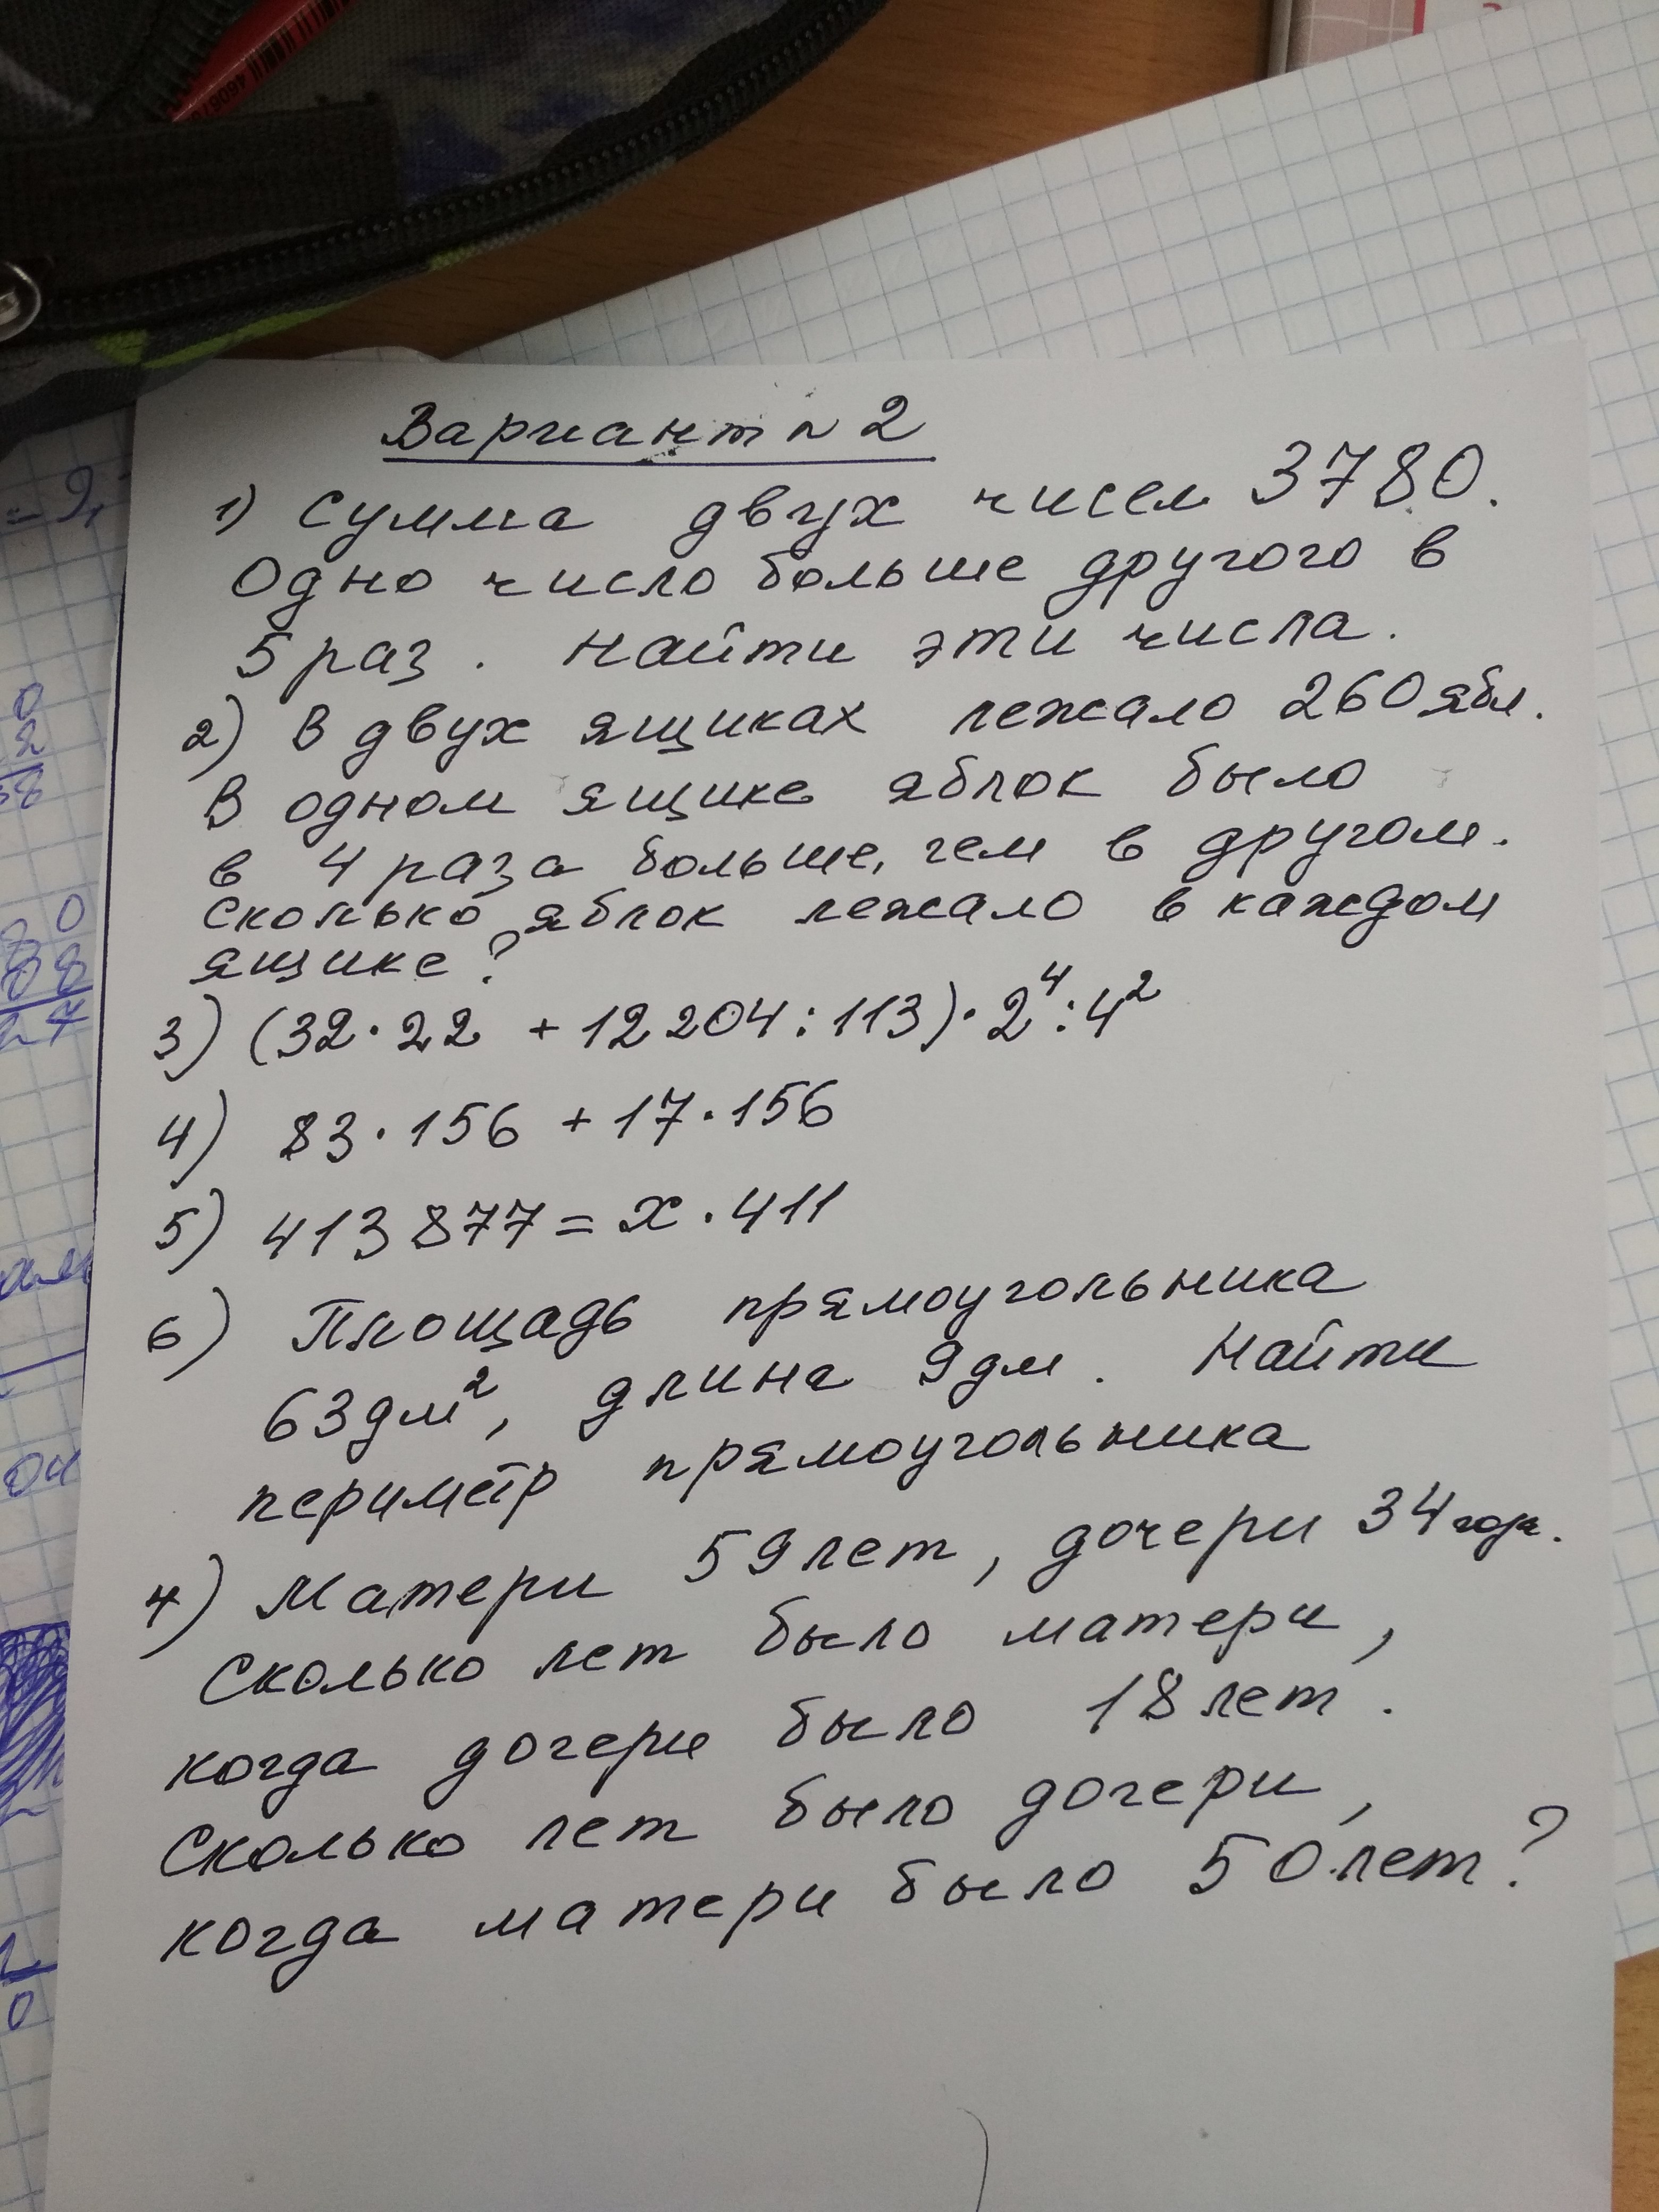 Вариант n 2
1) Сумма двух чисел 3780.
Одно число больше другого в
5 раз. Найти эти числа.
2) В двух ящиках лежало 260 ябл.
В одном ящике яблок было
в 4 раза больше, чем в другом.
Сколько яблок лежало в каждом
ящике?
3) (32·22 + 12204:113)·2⁴:4²
4) 83·156 + 17·156
5) 413877 = x·411
6) Площадь прямоугольника
63 дм², длина 9 дм. Найти
периметр прямоугольника
7) Матери 59 лет, дочери 34 года.
Сколько лет было матери,
когда дочери было 18 лет.
Сколько лет было дочери,
когда матери было 50 лет?